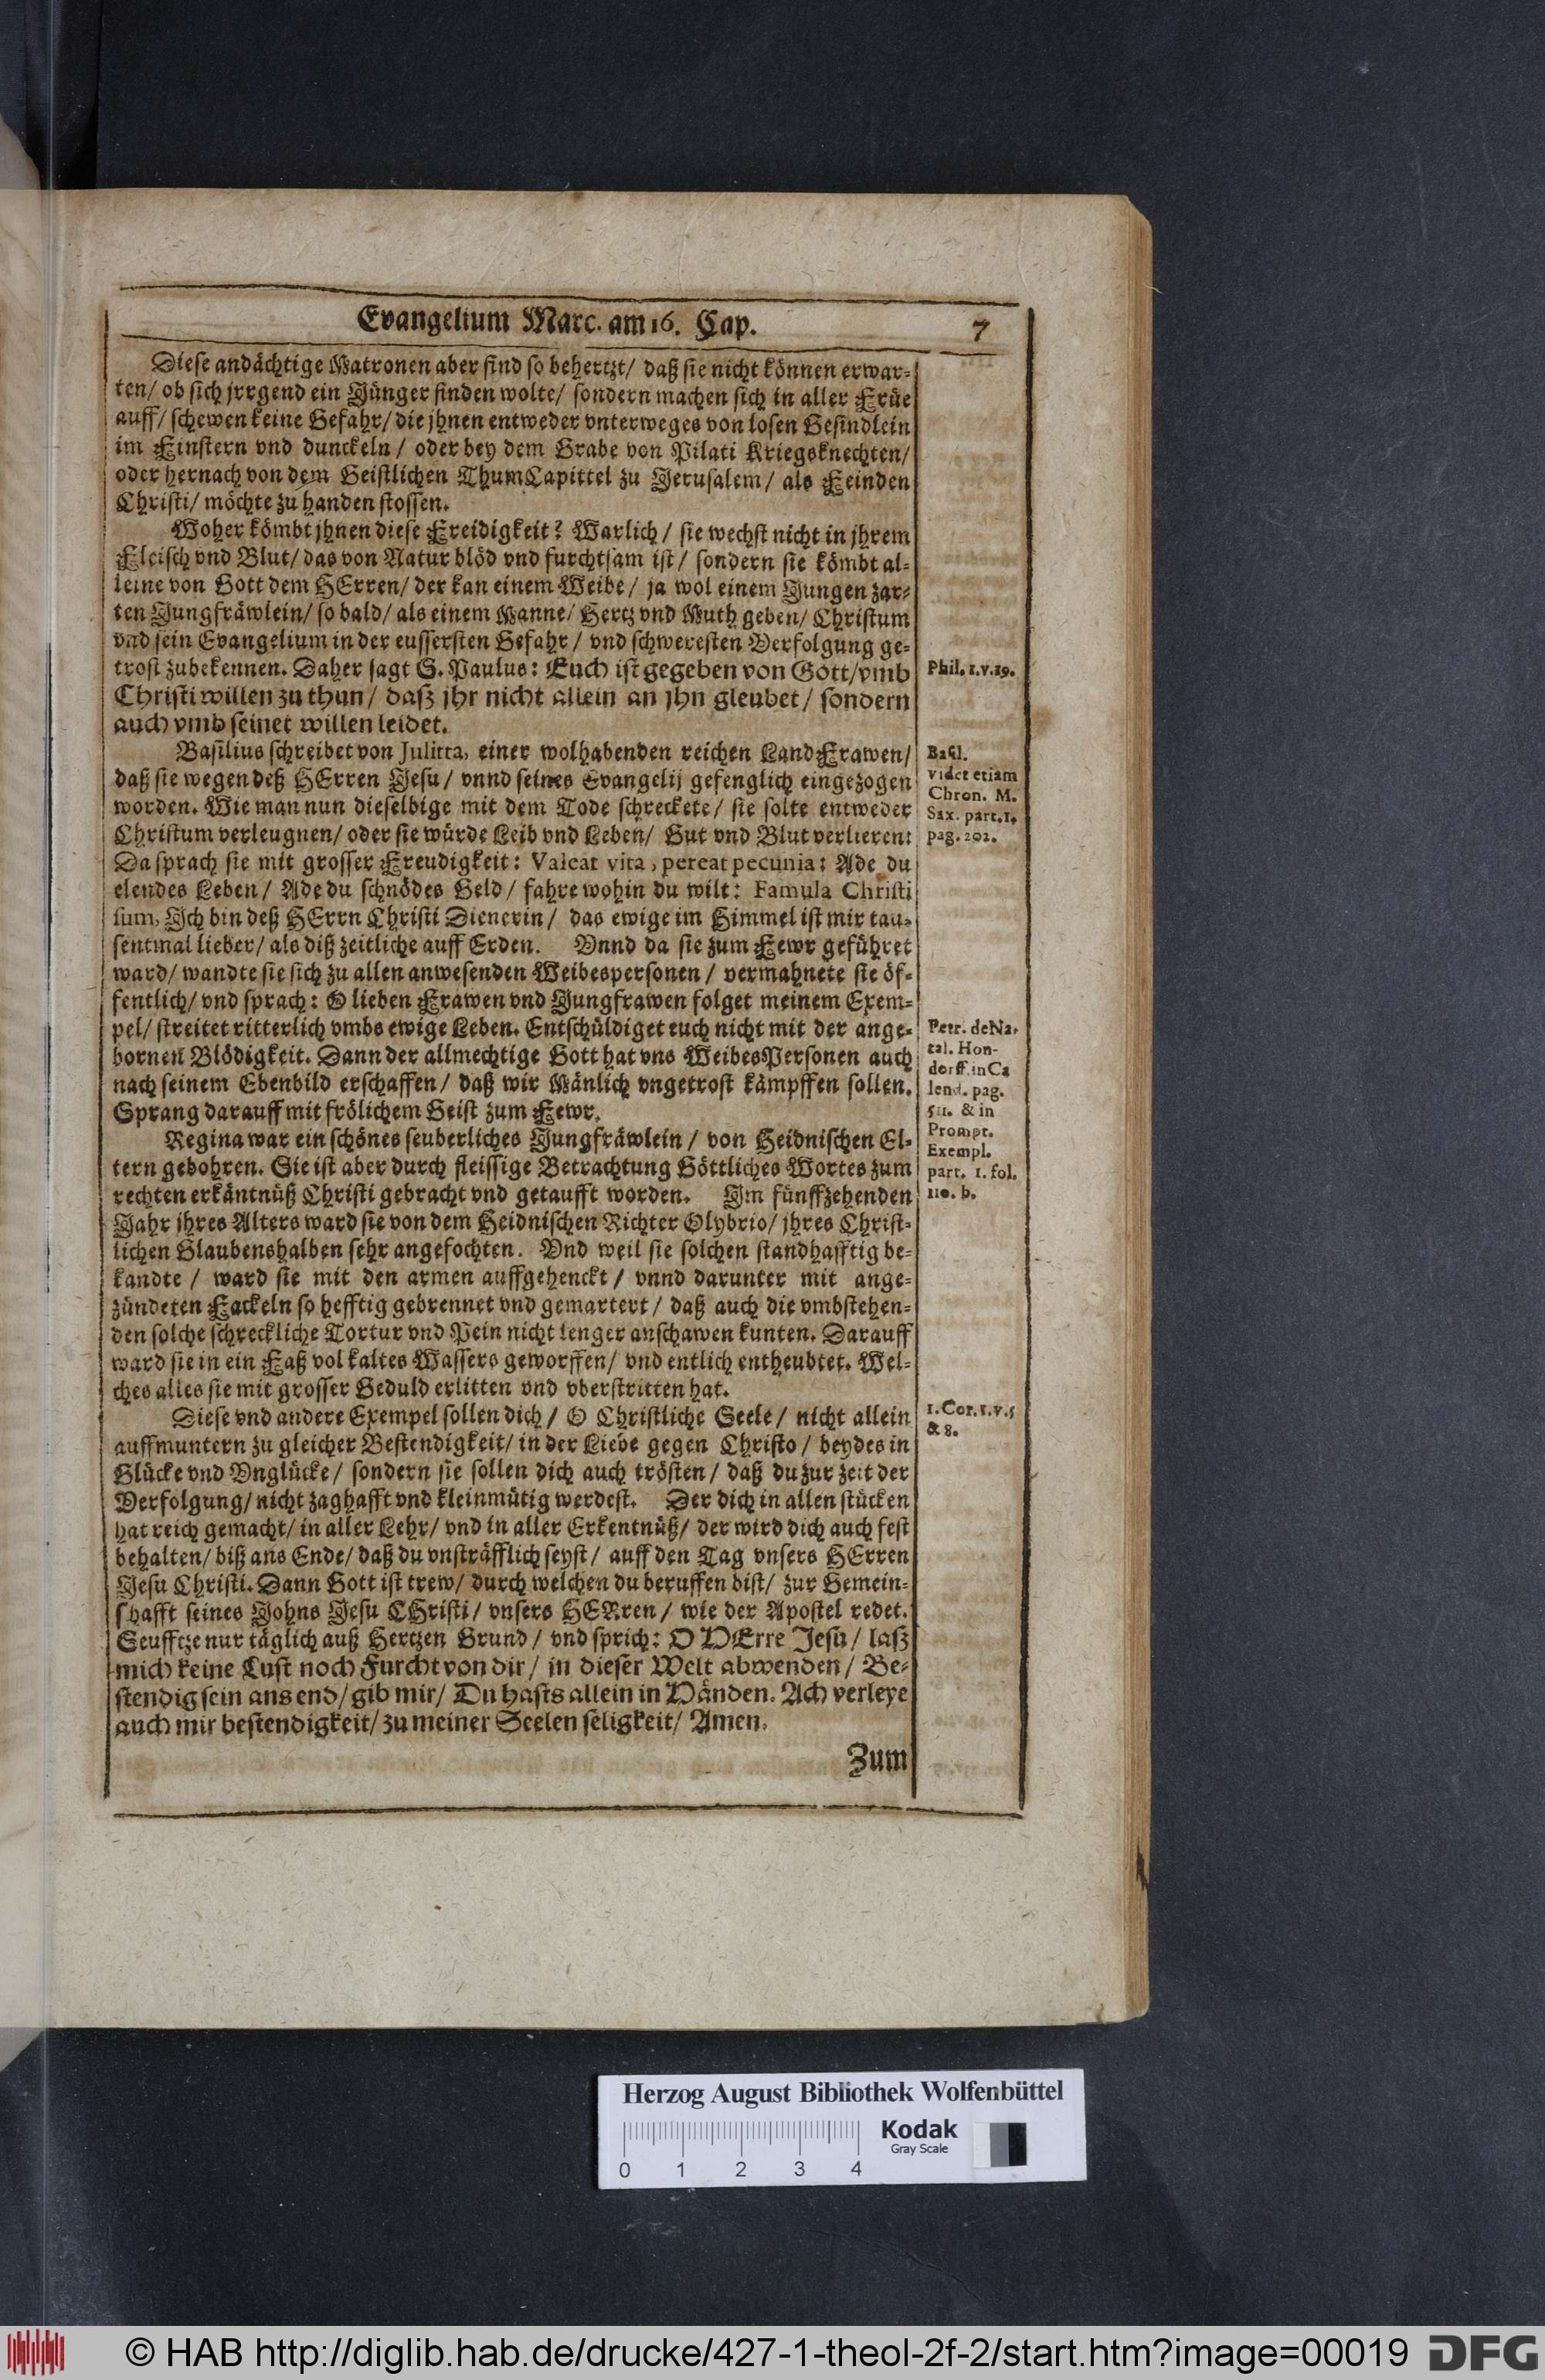 Evangelium Marc. am 16. Cap. 7
Diese andächtige Matronen aber sind so behertzt/ daß sie nicht können erwar-
ten/ ob sich jrrgend ein Jünger finden wolte/ sondern machen sich in aller Früe
auff/ schewen keine Gefahr/ die jhnen entweder vnterweges von losen Gesindlein
im Finstern vnd dunckeln/ oder bey dem Grabe von Pilati Kriegsknechten/
oder hernach von dem Geistlichen ThumCapittel zu Jerusalem/ als Feinden
Christi/ möchte zu handen stossen.
Woher kömbt jhnen diese Freidigkeit? Warlich/ sie wechst nicht in jhrem
Fleisch vnd Blut/ das von Natur blöd vnd furchtsam ist/ sondern sie kömbt al-
leine von Gott dem HErren/ der kan einem Weibe/ ja wol einem Jungen zar-
ten Jungfräwlein/ so bald/ als einem Manne/ Hertz vnd Muth geben/ Christum
vnd sein Evangelium in der eussersten Gefahr/ vnd schweresten Verfolgung ge-
trost zubekennen. Daher sagt S. Paulus: Euch ist gegeben von Gott/ vmb
Christi willen zu thun/ daß jhr nicht allein an jhn gleubet/ sondern
auch vmb seinet willen leidet.
Phil. 1. v. 19.
Basilius schreibet von Julitta, einer wolhabenden reichen LandFrawen/
daß sie wegen deß HErren Jesu/ vnnd seines Evangelij gefenglich eingezogen
worden. Wie man nun dieselbige mit dem Tode schreckete/ sie solte entweder
Christum verleugnen/ oder sie würde Leib vnd Leben/ Gut vnd Blut verlieren:
Da sprach sie mit grosser Freudigkeit: Valeat vita, pereat pecunia: Ade du
elendes Leben/ Ade du schnödes Geld/ fahre wohin du wilt: Famula Christi
sum, Jch bin deß HErrn Christi Dienerin/ das ewige im Himmel ist mir tau-
sentmal lieber/ als diß zeitliche auff Erden. Vnnd da sie zum Fewr geführet
ward/ wandte sie sich zu allen anwesenden Weibespersonen/ vermahnete sie öf-
fentlich/ vnd sprach: O lieben Frawen vnd Jungfrawen folget meinem Exem-
pel/ streitet ritterlich vmbs ewige Leben. Entschüldiget euch nicht mit der ange-
bornen Blödigkeit. Dann der allmechtige Gott hat vns WeibesPersonen auch
nach seinem Ebenbild erschaffen/ daß wir Mänlich vngetrost kämpffen sollen.
Sprang darauff mit frölichem Geist zum Fewr.
Basil.
videt etiam
Chron. M.
Sax. part. 1.
pag. 202.
Regina war ein schönes seuberliches Jungfräwlein/ von Heidnischen El-
tern gebohren. Sie ist aber durch fleissige Betrachtung Göttliches Wortes zum
rechten erkäntnüß Christi gebracht vnd getaufft worden. Jm fünffzehenden
Jahr jhres Alters ward sie von dem Heidnischen Richter Olybrio/ jhres Christ-
lichen Glaubens halben sehr angefochten. Vnd weil sie solchen standhafftig be-
kandte/ ward sie mit den armen auffgehenckt/ vnnd darunter mit ange-
zündeten Fackeln so hefftig gebrennet vnd gemartert/ daß auch die vmbstehen-
den solche schreckliche Tortur vnd Pein nicht lenger anschawen kunten. Darauff
ward sie in ein Faß vol kaltes Wassers geworffen/ vnd entlich entheubtet. Wel-
ches alles sie mit grosser Geduld erlitten vnd vberstritten hat.
Petr. de Na-
tal. Hon-
dorff. in Ca
lend. pag.
511. & in
Prompt.
Exempl.
part. 1. fol.
110. b.
Diese vnd andere Exempel sollen dich/ O Christliche Seele/ nicht allein
auffmuntern zu gleicher Bestendigkeit/ in der Liebe gegen Christo/ beydes in
Glücke vnd Vnglücke/ sondern sie sollen dich auch trösten/ daß du zur zeit der
Verfolgung/ nicht zaghafft vnd kleinmütig werdest. Der dich in allen stücken
hat reich gemacht/ in aller Lehr/ vnd in aller Erkentnüß/ der wird dich auch fest
behalten/ biß ans Ende/ daß du vnsträfflich seyst/ auff den Tag vnsers HErren
Jesu Christi. Dann Gott ist trew/ durch welchen du beruffen bist/ zur Gemein-
schafft seines Sohns Jesu CHristi/ vnsers HERren/ wie der Apostel redet.
Seufftze nur täglich auß Hertzen Grund/ vnd sprich: O HErre Jesu/ laß
mich keine Lust noch Furcht von dir/ in dieser Welt abwenden/ Be-
stendig sein ans end/ gib mir/ Du hasts allein in Händen. Ach verleye
auch mir bestendigkeit/ zu meiner Seelen seligkeit/ Amen.
1. Cor. 1. v. 5
& 8.
Zum
Herzog August Bibliothek Wolfenbüttel
Kodak
Gray Scale
0 1 2 3 4
© HAB http://diglib.hab.de/drucke/427-1-theol-2f-2/start.htm?image=00019 DFG